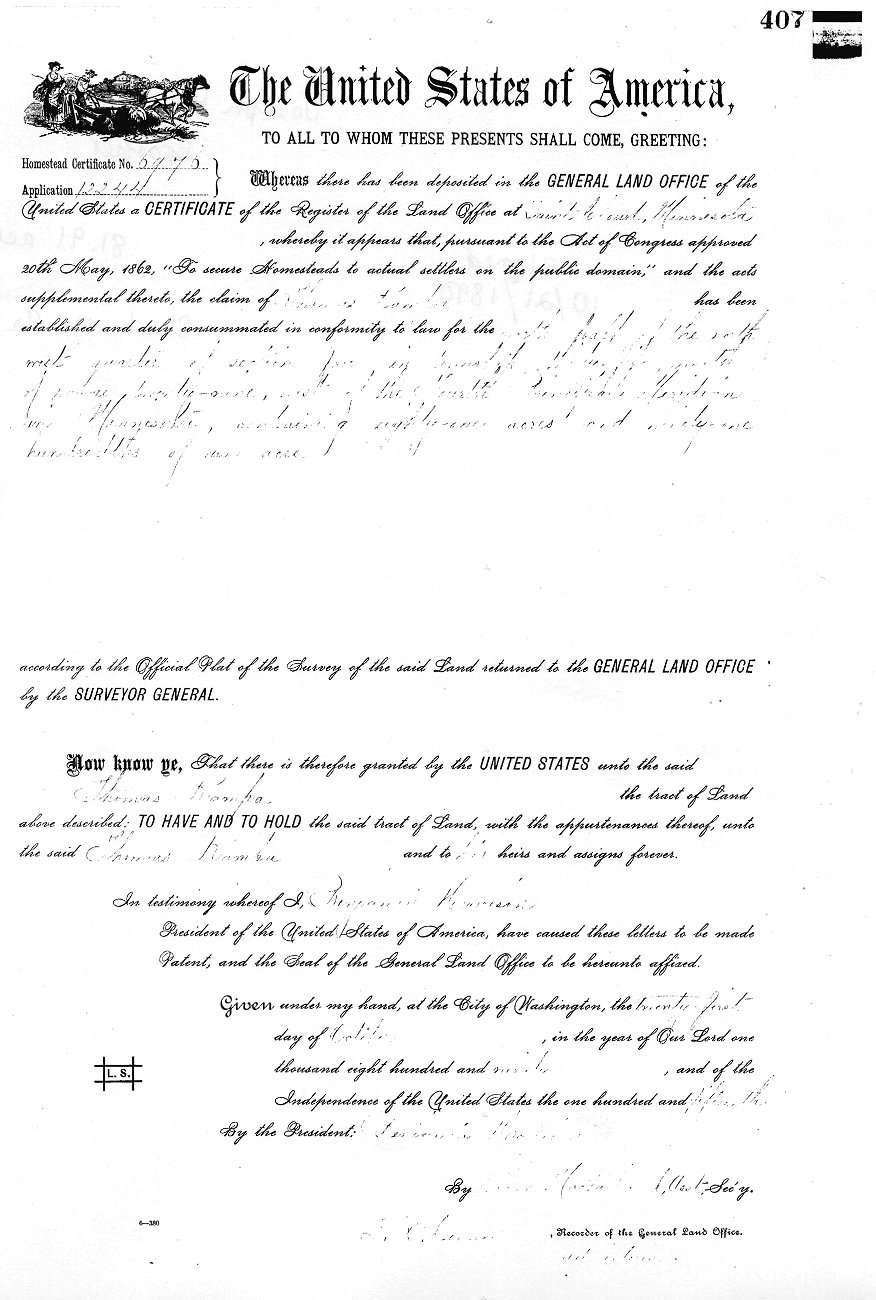 407
The United States of America,
TO ALL TO WHOM THESE PRESENTS SHALL COME, GREETING:
Homestead Certificate No. 6976
Application 12244
Whereas there has been deposited in the GENERAL LAND OFFICE of the
United States a CERTIFICATE of the Register of the Land Office at Saint Cloud, Minnesota
, whereby it appears that, pursuant to the Act of Congress approved
20th May, 1862, "To secure Homesteads to actual settlers on the public domain," and the acts
supplemental thereto, the claim of Thomas has been
established and duly consummated in conformity to law for the half of the north
west quarter of section in township
of range twenty-nine, west of the Fourth Principal Meridian
in Minnesota, containing eighty-one acres and ninety-one
hundredths of an acre
according to the Official Plat of the Survey of the said Land returned to the GENERAL LAND OFFICE
by the SURVEYOR GENERAL.
Now know ye, That there is therefore granted by the UNITED STATES unto the said
Thomas Kampa the tract of Land
above described: TO HAVE AND TO HOLD the said tract of Land, with the appurtenances thereof, unto
the said Thomas Kampa and to his heirs and assigns forever.
In testimony whereof I, Benjamin Harrison
President of the United States of America, have caused these letters to be made
Patent, and the Seal of the General Land Office to be hereunto affixed.
Given under my hand, at the City of Washington, the twenty first
day of October, in the year of Our Lord one
thousand eight hundred and ninety, and of the
Independence of the United States the one hundred and fifteenth
L. S.
By the President: Benjamin Harrison
By Asst. Sec'y.
6—380
, Recorder of the General Land Office.